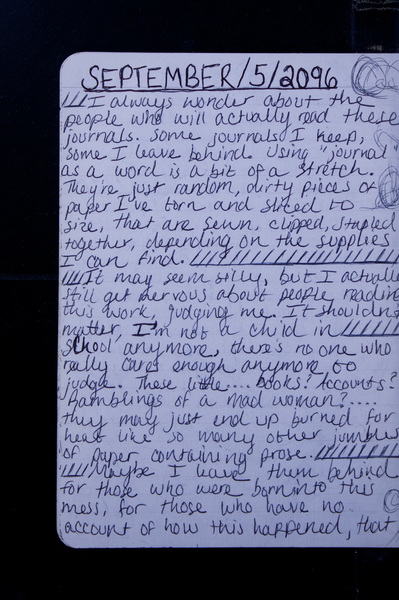 SEPTEMBER/5/2096
////I always wonder about the
people who will actually read these
journals. Some journals I keep,
some I leave behind. Using "journal"
as a word is a bit of a stretch.
They're just random, dirty pieces of
paper I've torn and sliced to
size, that are sewn, clipped, stapled
together, depending on the supplies
I can find. ////////////////////
////It may seem silly, but I actually
still get nervous about people reading
this work, judging me. It shouldn't
matter, I'm not a child in //////
school anymore, there's no one who
really cares enough anymore to
judge. These little.... books? Accounts?
Ramblings of a mad woman?....
they may just end up burned for
heat like so many other jumbles
of paper containing prose. /////////
/////Maybe I leave them behind
for those who were born into this
mess, for those who have no
account of how this happened, that